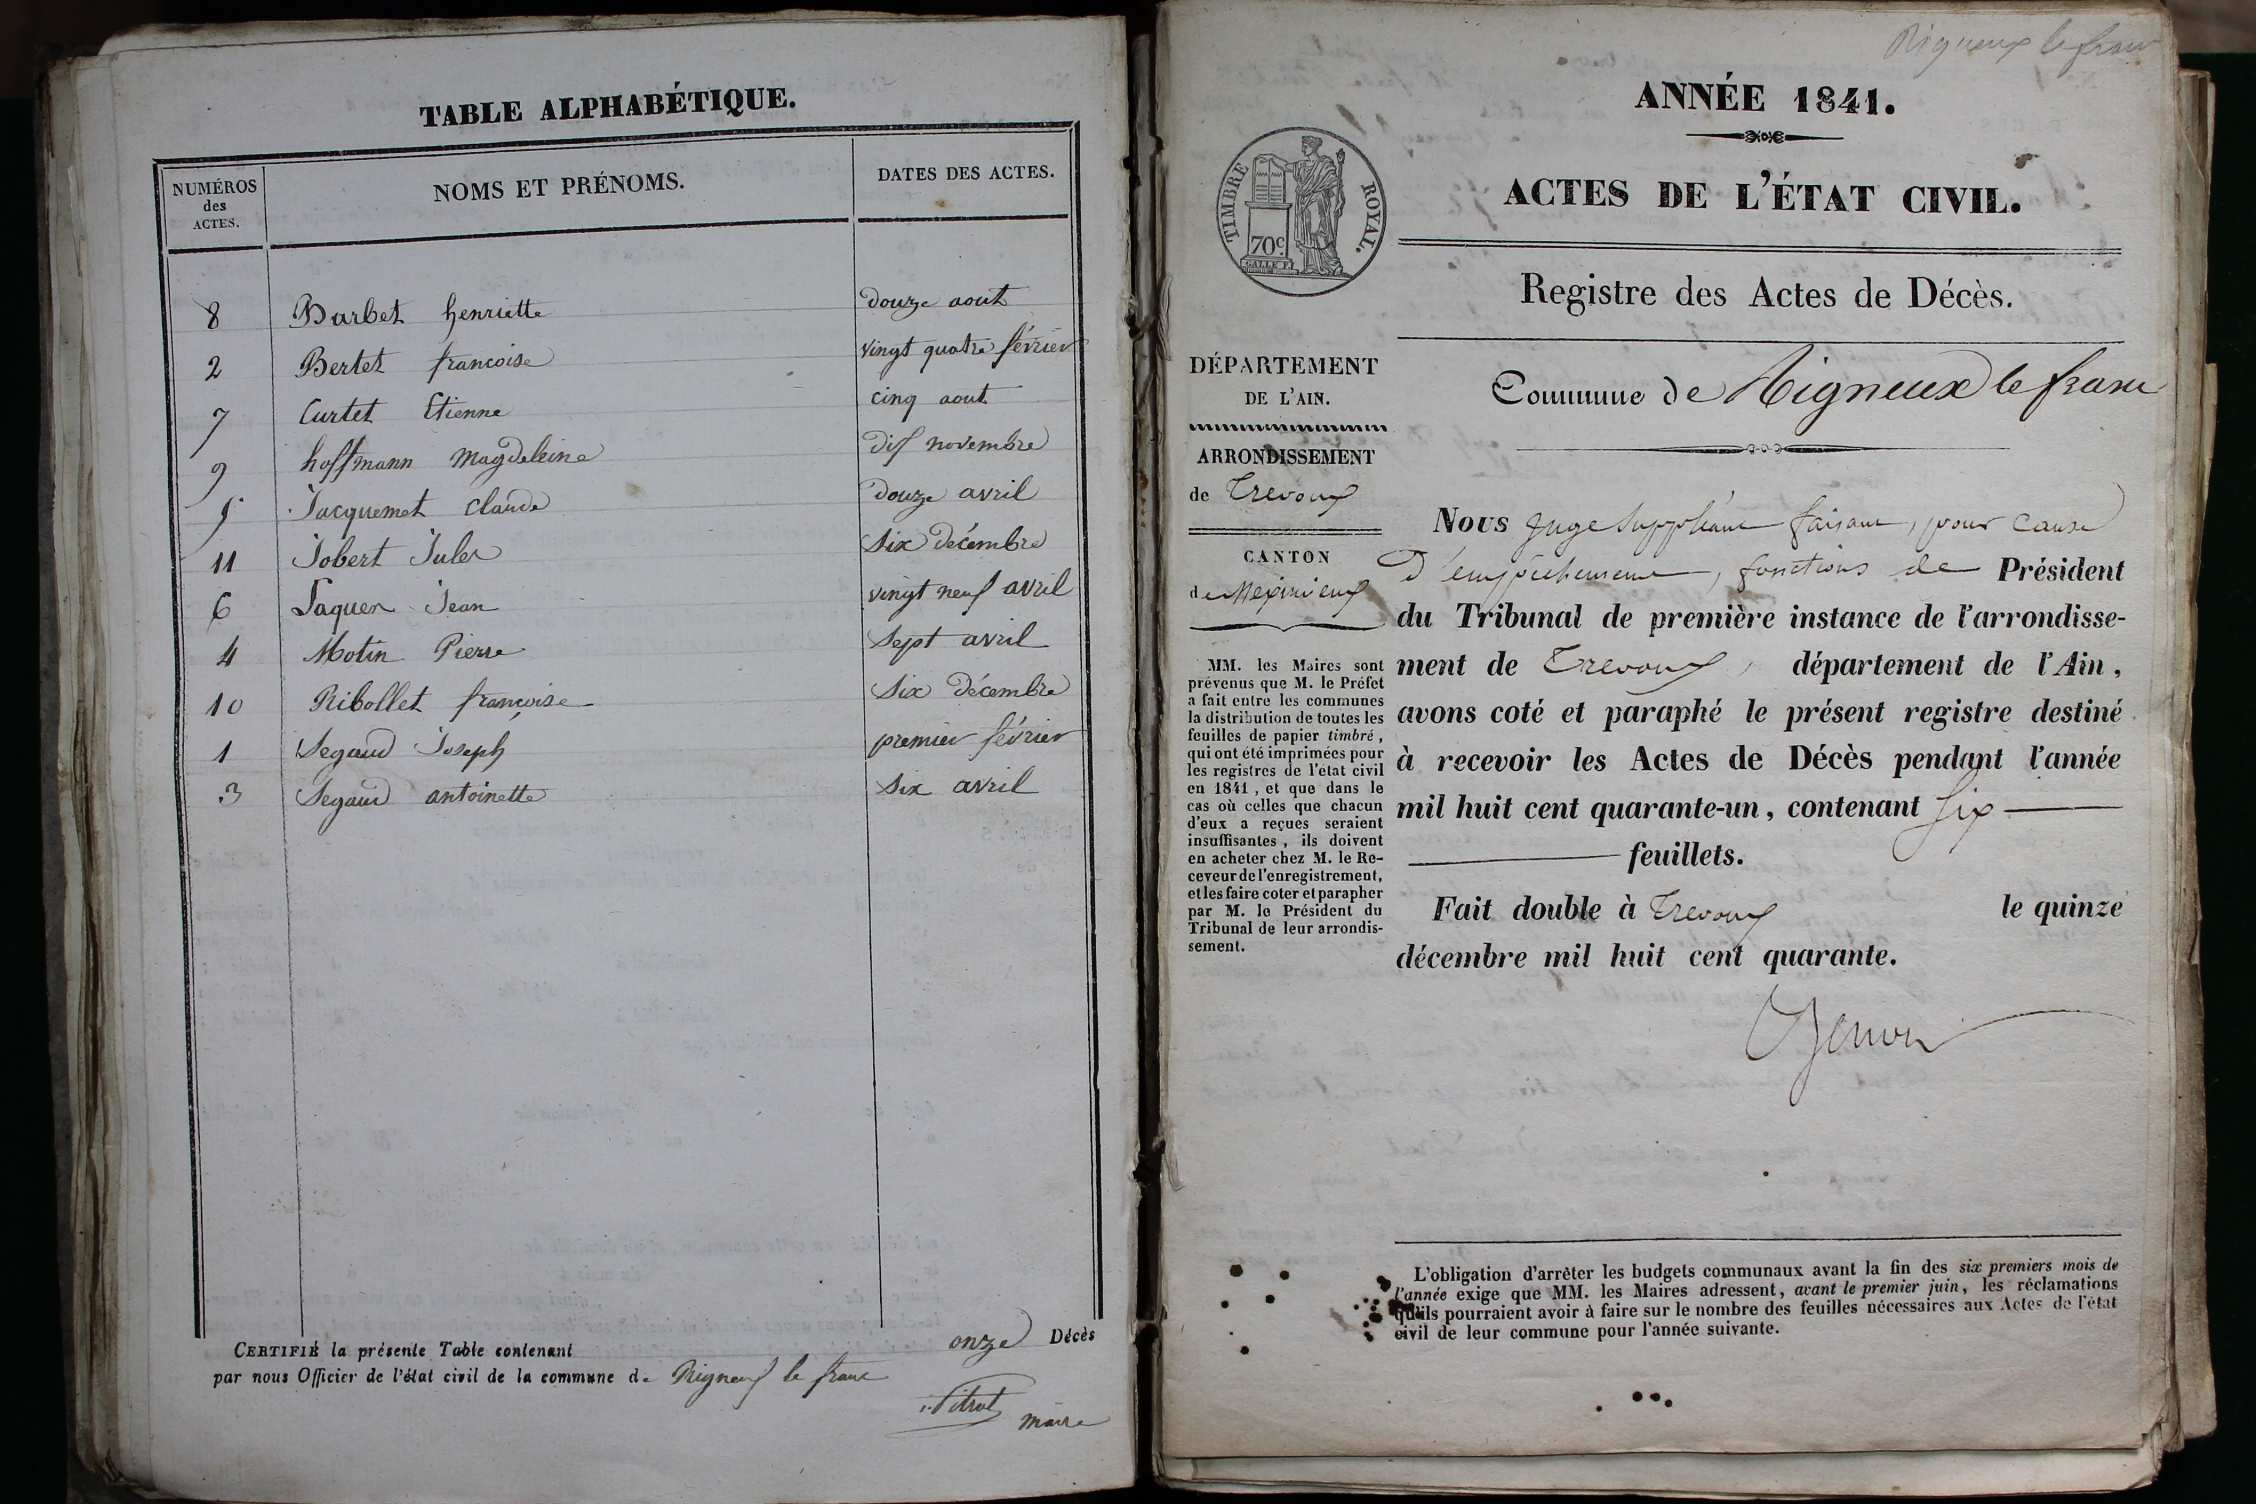 TABLE ALPHABÉTIQUE.
NUMÉROS des ACTES. NOMS ET PRÉNOMS. DATES DES ACTES.
8 Barbet henriette douze aout
2 Bertet francoise vingt quatre février
7 Curtet Etienne cinq aout
9 hoffmann Magdeleine dix novembre
5 Jacquemet Claude douze avril
11 Jobert Jules six décembre
6 Laquer Jean vingt neuf avril
4 Motin Pierre sept avril
10 Ribollet francoise six décembre
1 Segaud Joseph premier février
3 Segaud antoinette six avril
CERTIFIÉ la présente Table contenant onze Décès
par nous Officier de l'état civil de la commune de Rigneux le franc
maire
Rigneux le franc
ANNÉE 1841.
TIMBRE ROYAL.
70c
ACTES DE L'ÉTAT CIVIL.
Registre des Actes de Décès.
Commune de Rigneux le franc
DÉPARTEMENT
DE L'AIN.
ARRONDISSEMENT
de Trevoux
CANTON
de Meximieux
MM. les Maires sont
prévenus que M. le Préfet
a fait entre les communes
la distribution de toutes les
feuilles de papier timbré,
qui ont été imprimées pour
les registres de l'état civil
en 1841, et que dans le
cas où celles que chacun
d'eux a reçues seraient
insuffisantes, ils doivent
en acheter chez M. le Re-
ceveur de l'enregistrement,
et les faire coter et parapher
par M. le Président du
Tribunal de leur arrondis-
sement.
Nous Juge Suppléant faisant, pour cause
d'empêchement, fonctions de Président
du Tribunal de première instance de l'arrondisse-
ment de Trevoux, département de l'Ain,
avons coté et paraphé le présent registre destiné
à recevoir les Actes de Décès pendant l'année
mil huit cent quarante-un, contenant Six
feuillets.
Fait double à Trevoux le quinze
décembre mil huit cent quarante.
L'obligation d'arrêter les budgets communaux avant la fin des six premiers mois de
l'année exige que MM. les Maires adressent, avant le premier juin, les réclamations
qu'ils pourraient avoir à faire sur le nombre des feuilles nécessaires aux Actes de l'état
civil de leur commune pour l'année suivante.